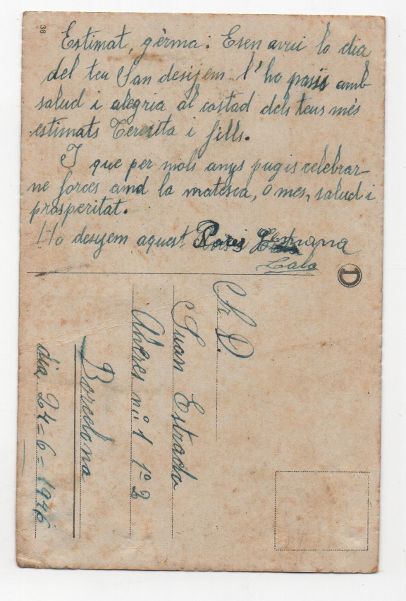 38
Estimat, gèrma: Esen avui lo dia
del teu San desijem l'ho pasis amb
salud i alegria al costad dels teus més
estimats Teresita i fills.
I que per mols anys pugis celebrar
ne forces amb la mateixa, o mes, salud i
prosperitat.
Ho desijem aquest Pares Germana
Lala
D
Sr. D.
Juan Estrada
nº 1 1º 2
Barcelona
dia 24=6=1946